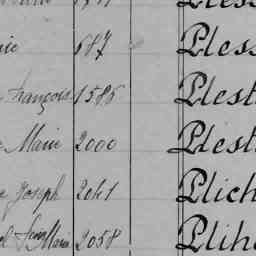 687 Pless
François 1586 Plest
Marie 2000 Plest
Joseph 2041 Plich
Marie 2058 Plih